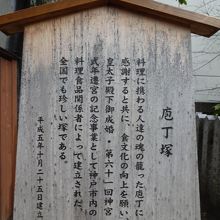 庖丁塚
料理に携わる人達の魂の籠った庖丁に
感謝すると共に、食文化の向上を願い
皇太子殿下御成婚・第六十一回神宮
式年遷宮の記念事業として神戸市内の
料理食品関係者によって建立された
全国でも珍しい塚である。
平成五年十月二十五日建立